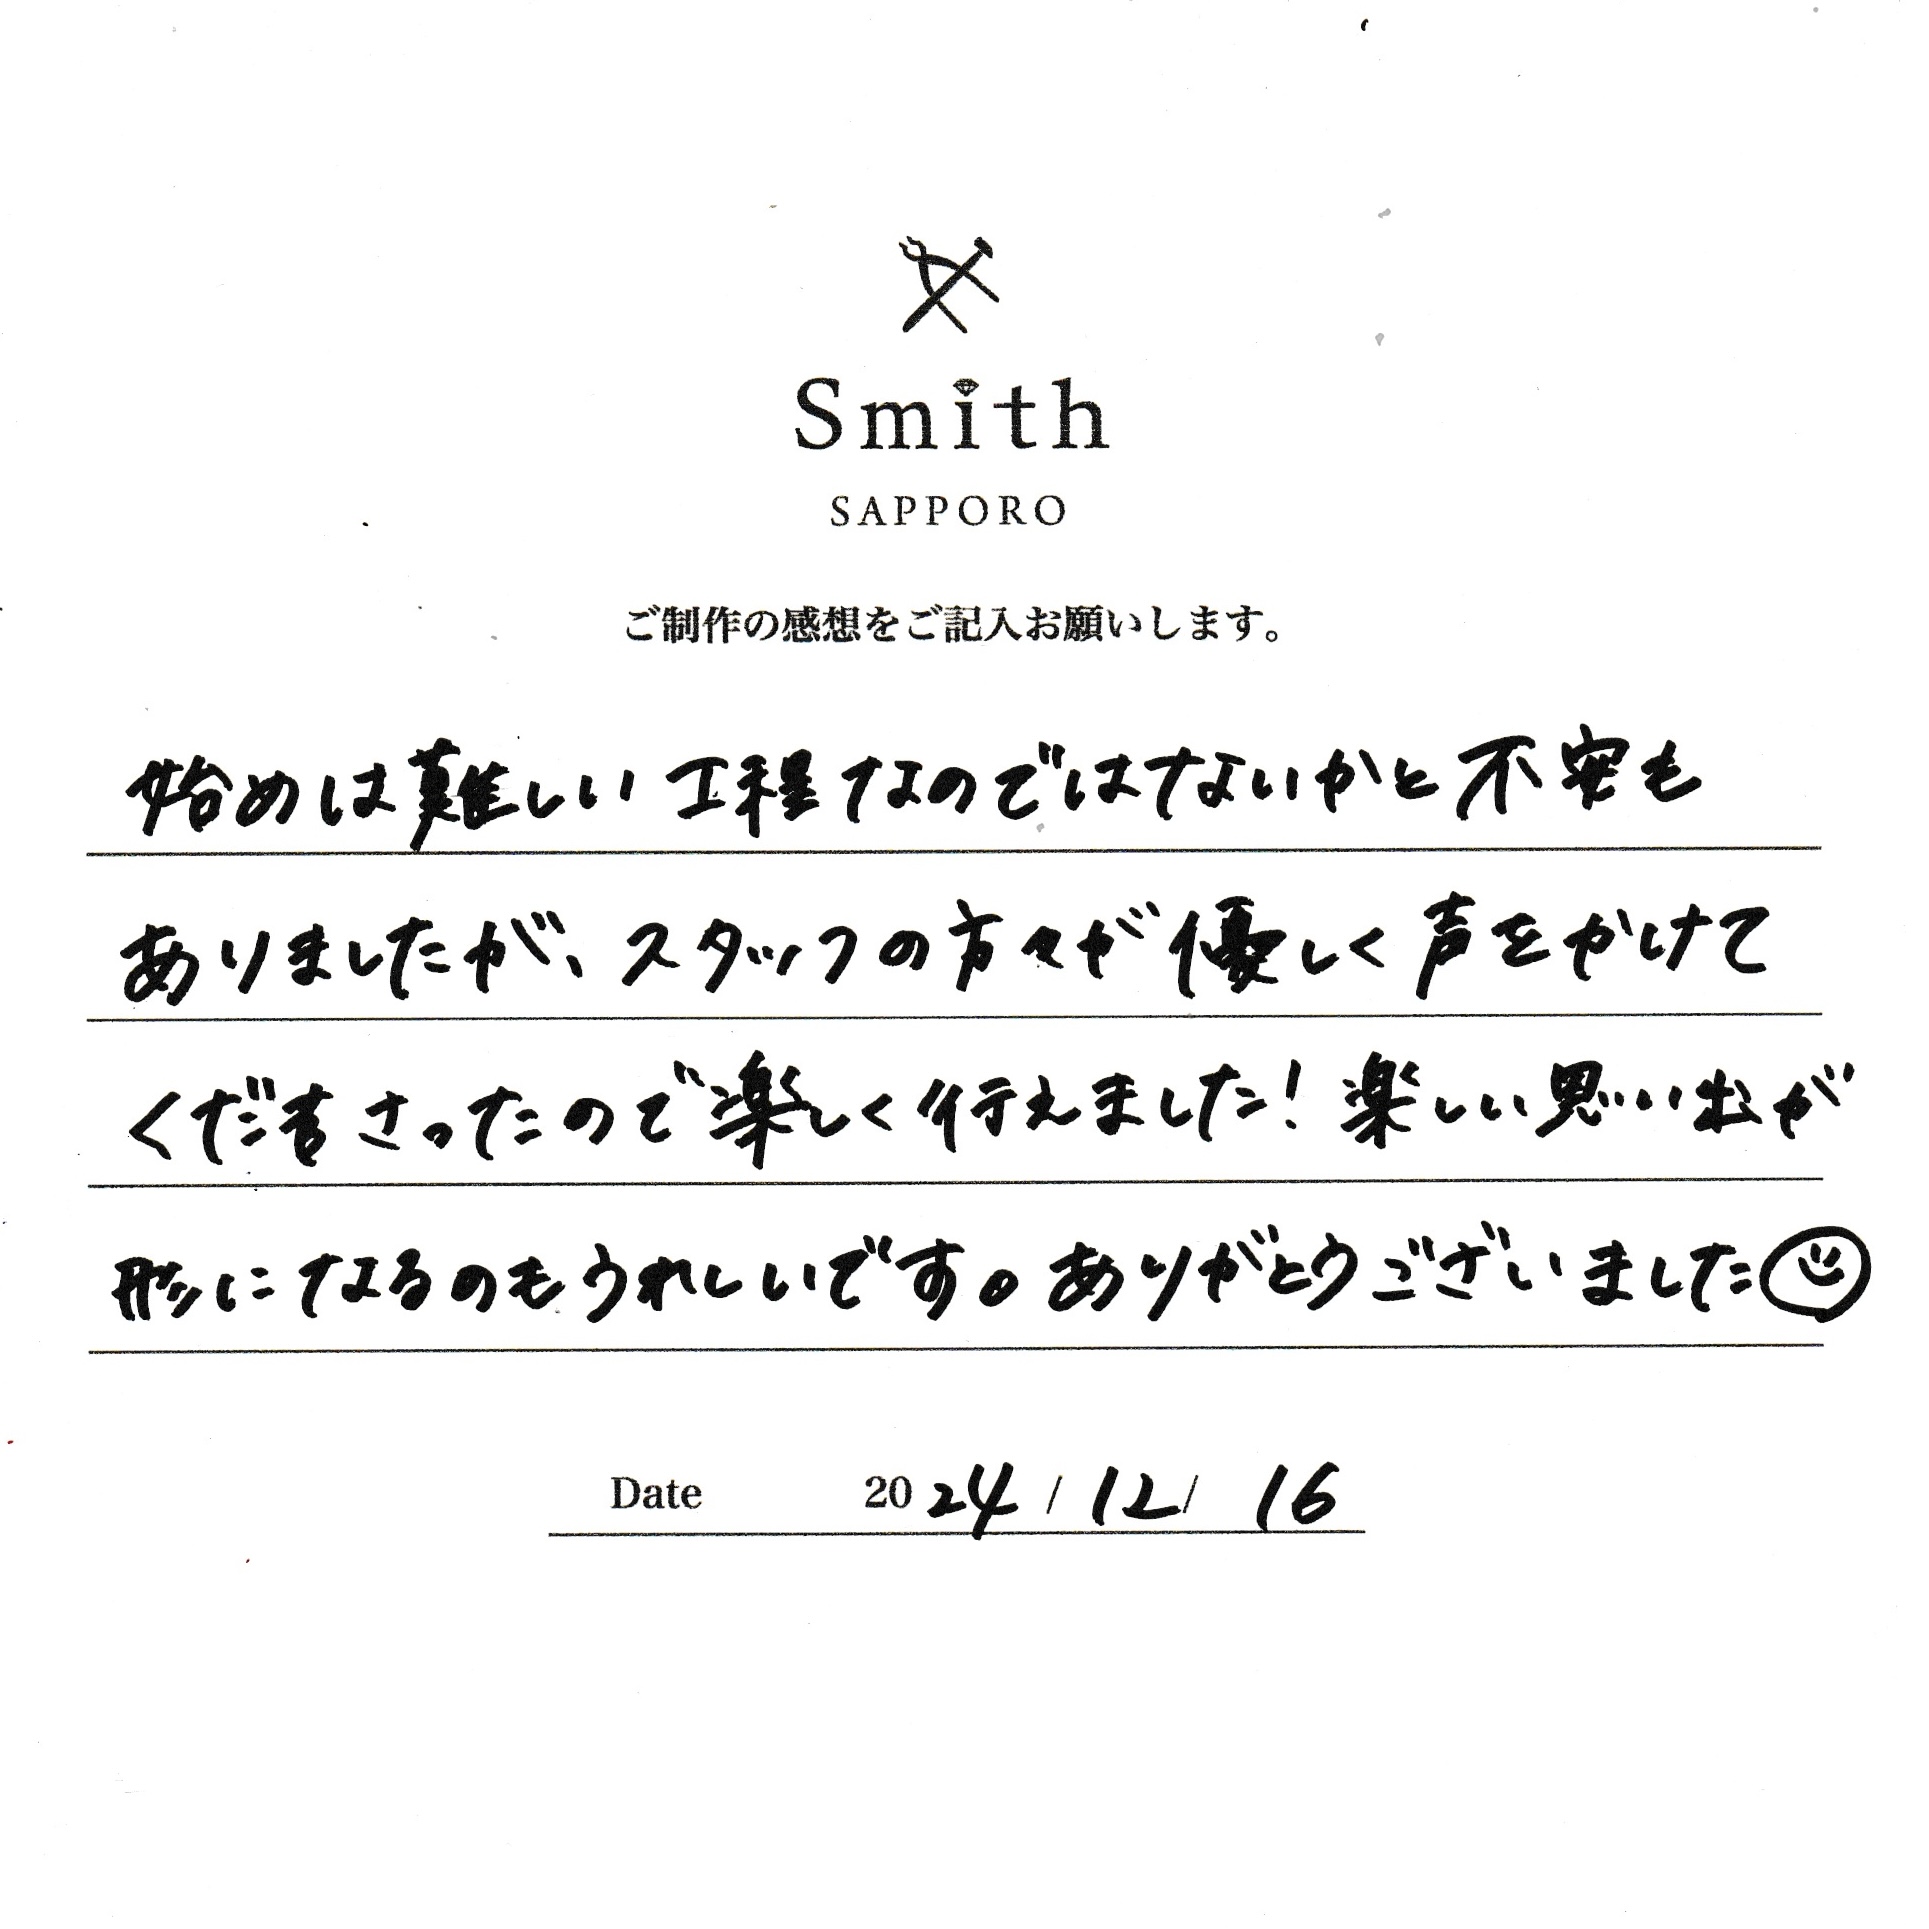 Smith
SAPPORO
ご制作の感想をご記入お願いします。
始めは難しい工程なのではないかと不安も
ありましたが、スタッフの方々が優しく声をかけて
くださったので楽しく行えました!楽しい思い出が
形になるのもうれしいです。ありがとうございました
Date 2024/12/16